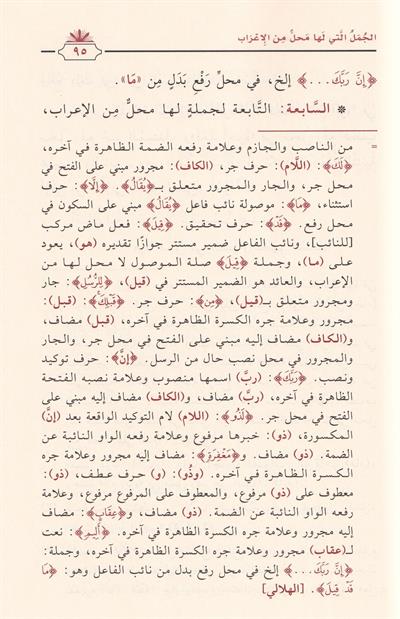 الجُمَلُ الَّتي لَها مَحلٌّ مِن الإِعْرَاب
٩٥
﴿إِنَّ رَبَّكَ...﴾ إلخ، في محلِّ رَفْعِ بَدَلٍ مِن «مَا».
* السَّابعة: التَّابعة لجملةٍ لها محلٌّ مِن الإعراب،
= من الناصب والجازم وعلامة رفعه الضمة الظاهرة في آخره،
﴿لَكَ﴾: (اللَّام): حرف جر، (الكاف): مجرور مبني على الفتح في
محل جر، والجار والمجرور متعلق بـ﴿يُقَالُ﴾. ﴿إِلَّا﴾: حرف
استثناء، ﴿مَا﴾: موصولة نائب فاعل ﴿يُقَالُ﴾ مبني على السكون في
محل رفع. ﴿قَدْ﴾: حرف تحقيق. ﴿قِيلَ﴾: فعل ماض مركب
[للنائب]، ونائب الفاعل ضمير مستتر جوازًا تقديره (هو)، يعود
على (ما)، وجملة ﴿قِيلَ﴾ صلة الموصول لا محل لها من
الإعراب، والعائد هو الضمير المستتر في (قيل)، ﴿لِلرُّسُلِ﴾: جار
ومجرور متعلق بـ(قيل)، ﴿مِن﴾: حرف جر. ﴿قَبْلِكَ﴾: (قبل):
مجرور وعلامة جره الكسرة الظاهرة في آخره، (قبل) مضاف،
و(الكاف) مضاف إليه مبني على الفتح في محل جر، والجار
والمجرور في محل نصب حال من الرسل. ﴿إِنَّ﴾: حرف توكيد
ونصب. ﴿رَبَّكَ﴾: (ربَّ) اسمها منصوب وعلامة نصبه الفتحة
الظاهرة في آخره، (ربَّ) مضاف، و(الكاف) مضاف إليه مبني على
الفتح في محل جر. ﴿لَذُو﴾: (اللام) لام التوكيد الواقعة بعد (إنَّ)
المكسورة، (ذو): خبرها مرفوع وعلامة رفعه الواو النائبة عن
الضمة. (ذو) مضاف. و﴿مَغْفِرَةٍ﴾: مضاف إليه مجرور وعلامة جره
الكسرة الظاهرة في آخره. (وذُو): (و) حرف عطف، (ذو):
معطوف على (ذو) مرفوع، والمعطوف على المرفوع مرفوع، وعلامة
رفعه الواو النائبة عن الضمة. (ذو) مضاف، و﴿عِقَابٍ﴾: مضاف
إليه مجرور وعلامة جره الكسرة الظاهرة في آخره. ﴿أَلِيمٍ﴾: نعت
لـ(عقاب) مجرور وعلامة جره الكسرة الظاهرة في آخره، وجملة:
﴿إِنَّ رَبَّكَ...﴾ إلخ في محل رفع بدل من نائب الفاعل وهو: ﴿مَا
قَدْ قِيلَ﴾. [الهلالي]